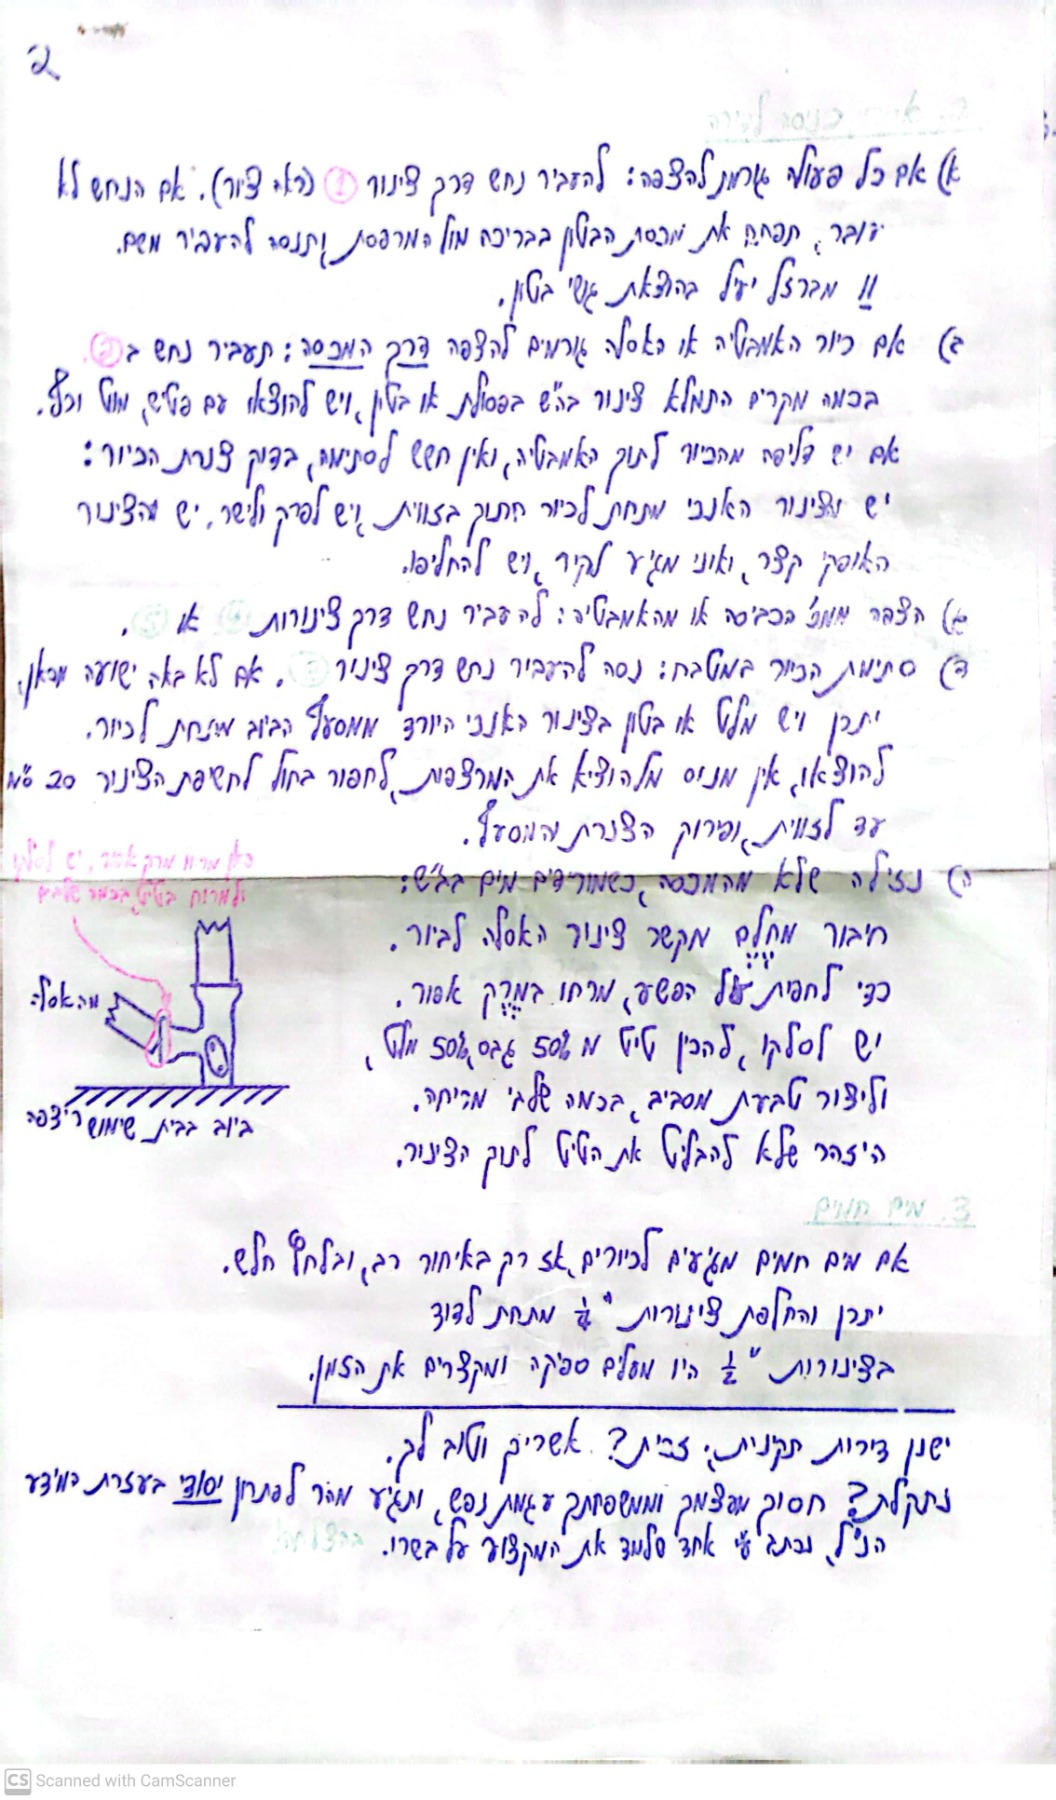 2
א) אם כל פעולה גורמת להצפה: להעביר נחש דרך צינור ① (ראה ציור). אם הנחש לא
עובר, תפתח את מכסת הבטון בבריכה מול המרפסת, ותנסה להעביר משם.
!! מברזל יעיל בהוצאת גושי בטון.
ב) אם כיור האמבטיה או האסלה גורמים להצפה דרך המכסה: תעביר נחש ב②.
בכמה מקרים התמלא צינור ביה"ש בפסולת או בטון, ויש להוציאו עם פטיש, מוט וכף.
אם יש דליפה מהכיור לתוך האמבטיה, ואין חשש לסתימה, בדוק צנרת הכיור:
יש והצינור האנכי מתחת לכיור חתוך בזווית, ויש לפרק ולישר. יש שהצינור
האופקי קצר, ואינו מגיע לקיר, ויש להחליפו.
ג) הצפה ממכ' הכביסה או מהאמבטיה: להעביר נחש דרך צינורות ④ או ⑤.
ד) סתימת הכיור במטבח: נסה להעביר נחש דרך צינור ③. אם לא באה ישועה מכאן,
יתכן ויש מלט או בטון בצינור האנכי היורד ממסעף הביוב מתחת לכיור.
להוצאו, אין מנוס מלהוציא את המרצפות, לחפור בחול לחשיפת הצינור 20 ס"מ
עד לזווית, ופירוק הצנרת והמסעף.
ה) נזילה שלא מהמכסה, כשמורידים מים בביה"ש:
חיבור מחלם מקשר צינור האסלה לביוב.
כדי לחפות על הפשע, מרחו במרק אפור.
יש לסלקו, להכין טיט מ 50% גבס, 50% מלט,
וליצור טבעת מסביב, בכמה שלבי מריחה.
היזהר שלא להבליט את הטיט לתוך הצינור.
כאן מרוח מרק אפור, יש לסלקו
ולמרוח בטיט, בכמה שלבים
מהאסלה
ריצפה
ביוב בבית שימוש
3. מים חמים
אם מים חמים מגיעים לכיורים, אז רק באיחור רב, ובלחץ חלש.
יתכן והחלפת צינורות "¼ מתחת לדוד
בצינורות "½ היו מעלים ספיקה ומקצרים את הזמן.
ישנן דירות תקינות, זכית? אשריך וטוב לך.
נתקלת? חסוך מעצמך וממשפחתך עגמת נפש, ותגיע מהר לפתרון יסודי בעזרת המידע
הנ"ל, נכתב ע"י אחד שלמד את המקצוע על בשרו. בהצלחה!
CS Scanned with CamScanner